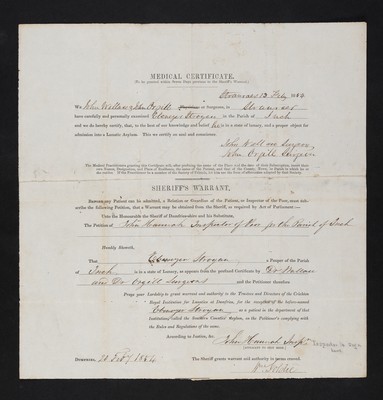 MEDICAL CERTIFICATE.
(To be granted within Seven Days previous to the Sheriff's Warrant.)
Stranraer 13 Feby 1854
We John Wallace & John Orgill Surgeons, in Stranraer
have carefully and personally examined Ebenezer in the Parish of Inch
and we do hereby certify, that, to the best of our knowledge and belief he is in a state of lunacy, and a proper object for
admission into a Lunatic Asylum. This we certify on soul and conscience.
John Wallace Surgeon
John Orgill Surgeon
The Medical Practitioners granting this Certificate will, after prefixing the name of the Place and the date of their Subscription, insert their
own Names, Designations, and Place of Residence, the name of the Patient, and that of the County, Town, or Parish in which he is
SHERIFF'S WARRANT,
Before any Patient can be admitted, a Relation or Guardian of the Patient, or Inspector of the Poor, must sub-
scribe the following Petition, that a Warrant may be obtained from the Sheriff, as required by Act of Parliament:—
Unto the Honourable the Sheriff of Dumfries-shire and his Substitute,
The Petition of John Hannah Inspector of Poor for the Parish of Inch
Humbly Sheweth,
That Ebenezer a Pauper of the Parish
of Inch is in a state of Lunacy, as appears from the prefixed Certificate by Wallace
and Orgill Surgeons and the Petitioner therefore
Prays your Lordship to grant warrant and authority to the Treasurer and Directors of the Crichton
Royal Institution for Lunatics at Dumfries, for the reception of the before-named
Ebenezer as a patient in the department of that
Institution, called the Southern Counties' Asylum, on the Petitioner's complying with
the Rules and Regulations of the same.
According to Justice, &c.
John Hannah Inspr
Dumfries, 20 Feby 1854 The Sheriff grants warrant and authority as above craved.